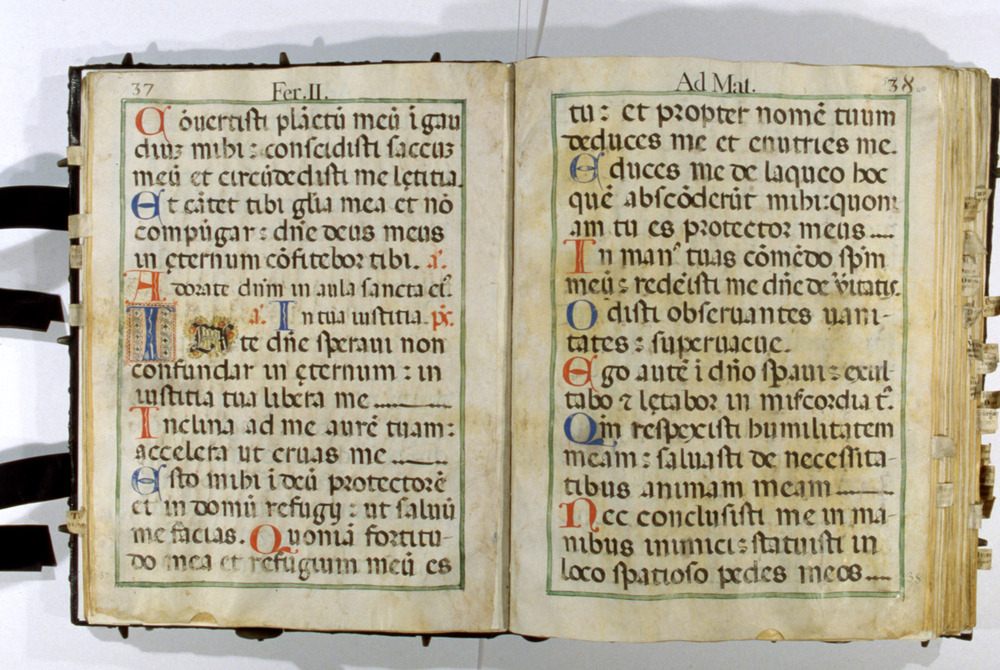 37
Fer. II.
Cōuertisti plāctū meū ī gau
diuȝ mihi : conscidisti saccuȝ
meū et circūdedisti me lętitia.
Et cātet tibi glīa mea et nō
compūgar : dn̄e deus meus
in ęternum cōfitebor tibi. a.
Adorate dn̄m in aula sancta ei.
a. In tua iustitia. ps.
IN te dn̄e speraui non
confundar in ęternum : in
iustitia tua libera me
Inclina ad me aurē tuam :
accelera ut eruas me
Esto mihi ī deū protectorē
et in domū refugij : ut saluū
me facias. Quoniā fortitu-
do mea et refugium meū es
Ad Mat.
38
tu : et propter nomē tuum
deduces me et enutries me.
Educes me de laqueo hoc
quē abscōderūt mihi : quoni
am tu es protector meus
In man⁹ tuas cōmēdo spm̄
meū : redēisti me dn̄e de v̄itatis.
Odisti obseruantes uani-
tates : superuacue.
Ego autē ī dn̄o sp̄aui : exul-
tabo ⁊ lętabor in mis̄cordia t.
Qm̄ respexisti humilitatem
meam : saluasti de necessita-
tibus animam meam
Nec conclusisti me in ma-
nibus inimici : statuisti in
loco spatioso pedes meos